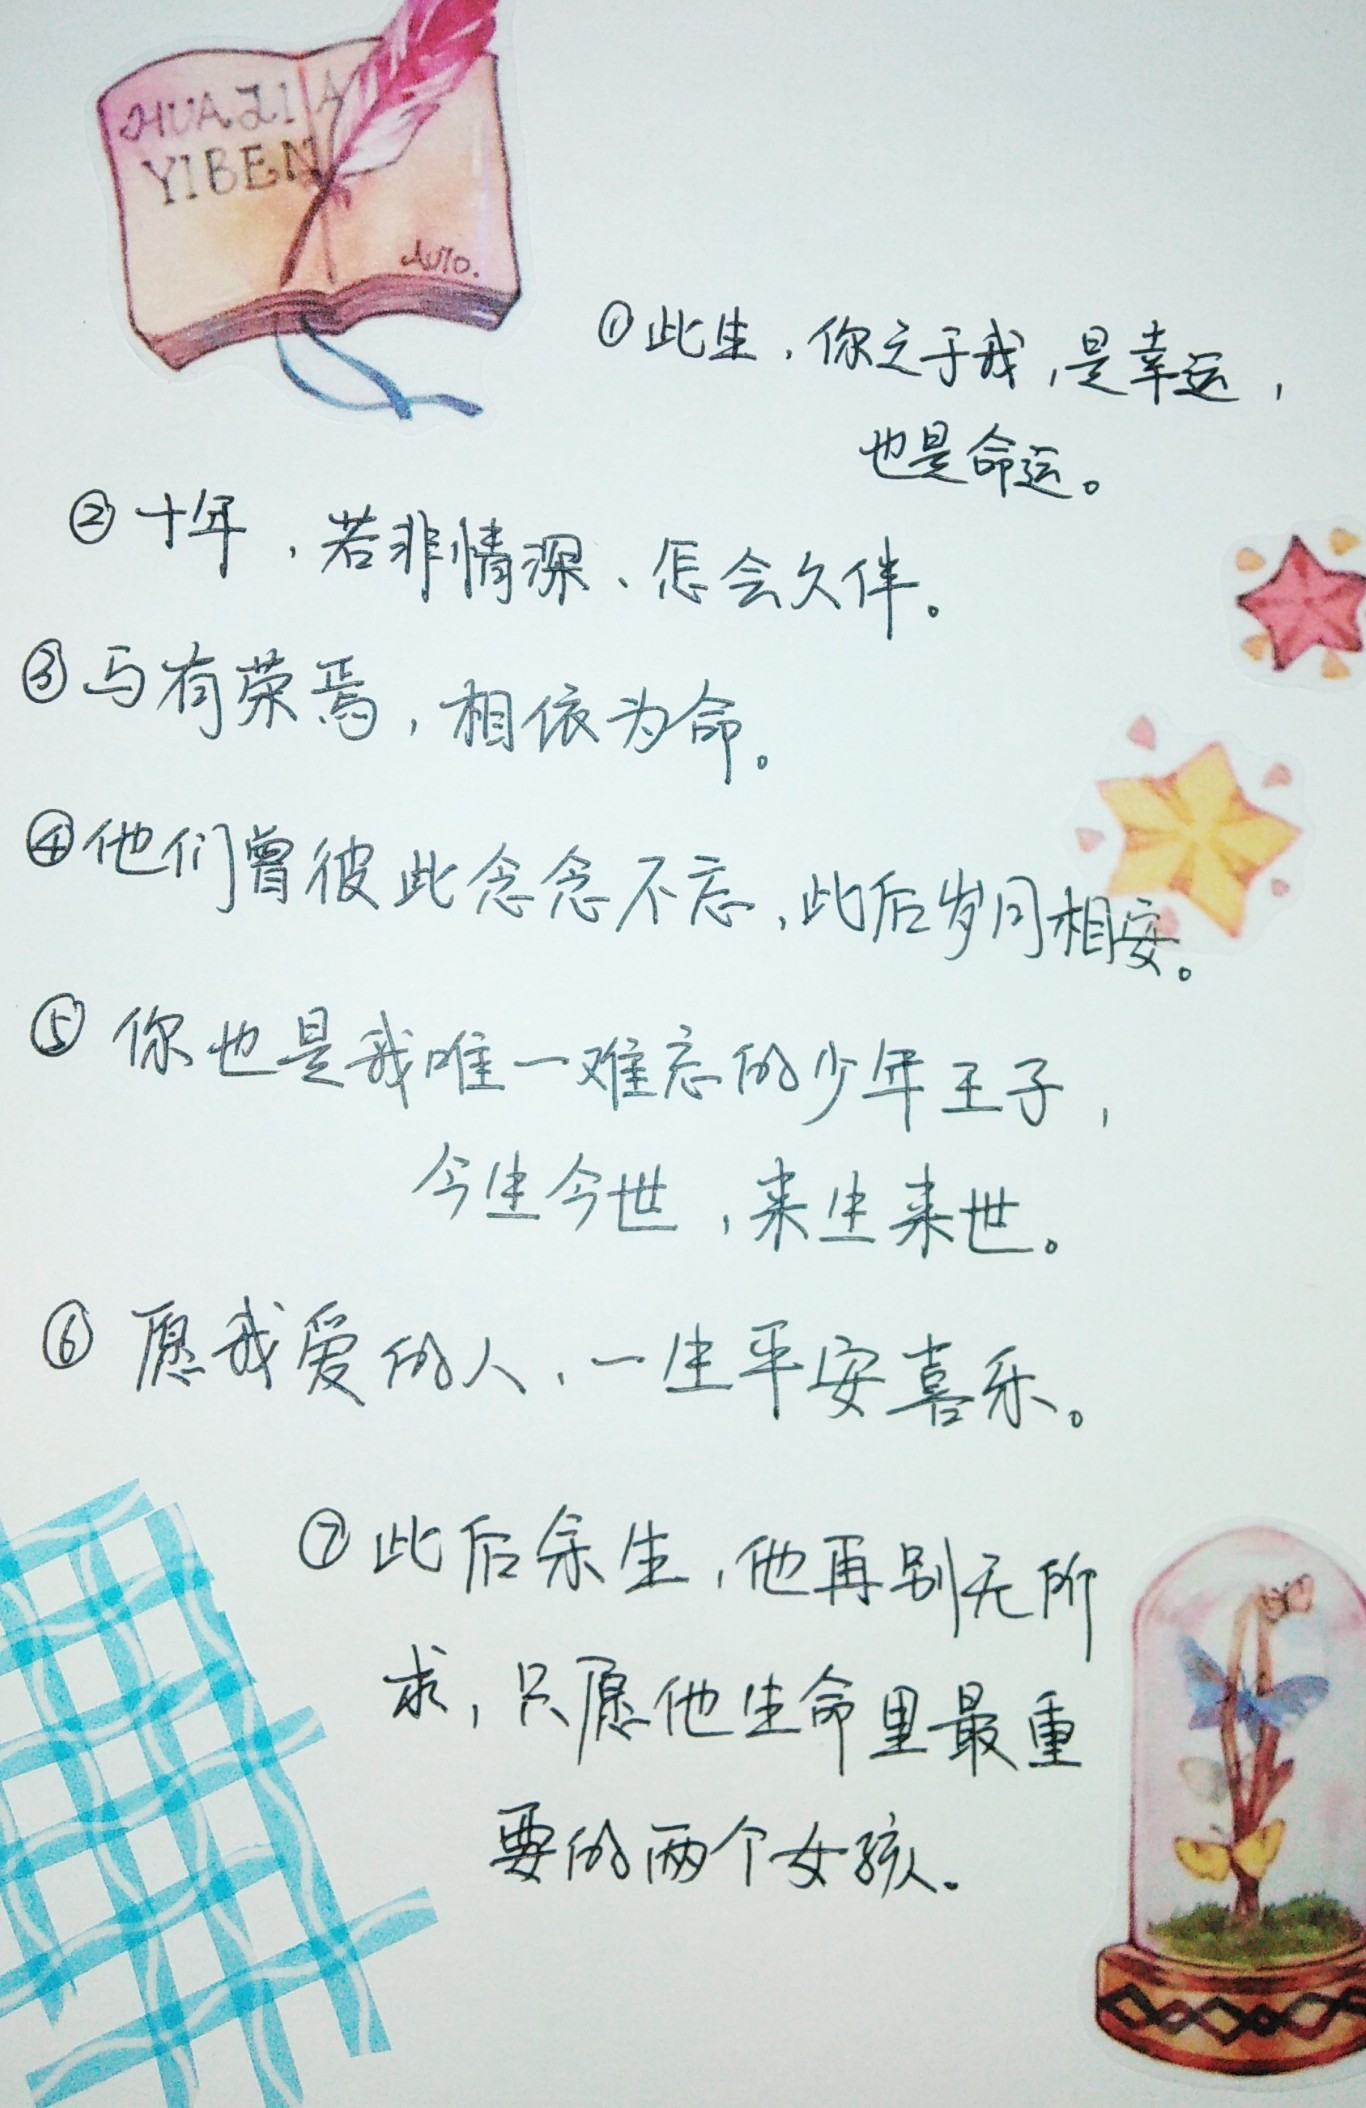 HUAJIA
YIBEN
Auto.
①此生，你之于我，是幸运，
也是命运。
②十年，若非情深、怎会久伴。
③与有荣焉，相依为命。
④他们曾彼此念念不忘，此后岁月相安。
⑤你也是我唯一难忘的少年王子，
今生今世，来生来世。
⑥愿我爱的人、一生平安喜乐。
⑦此后余生，他再别无所
求，只愿他生命里最重
要的两个女孩.